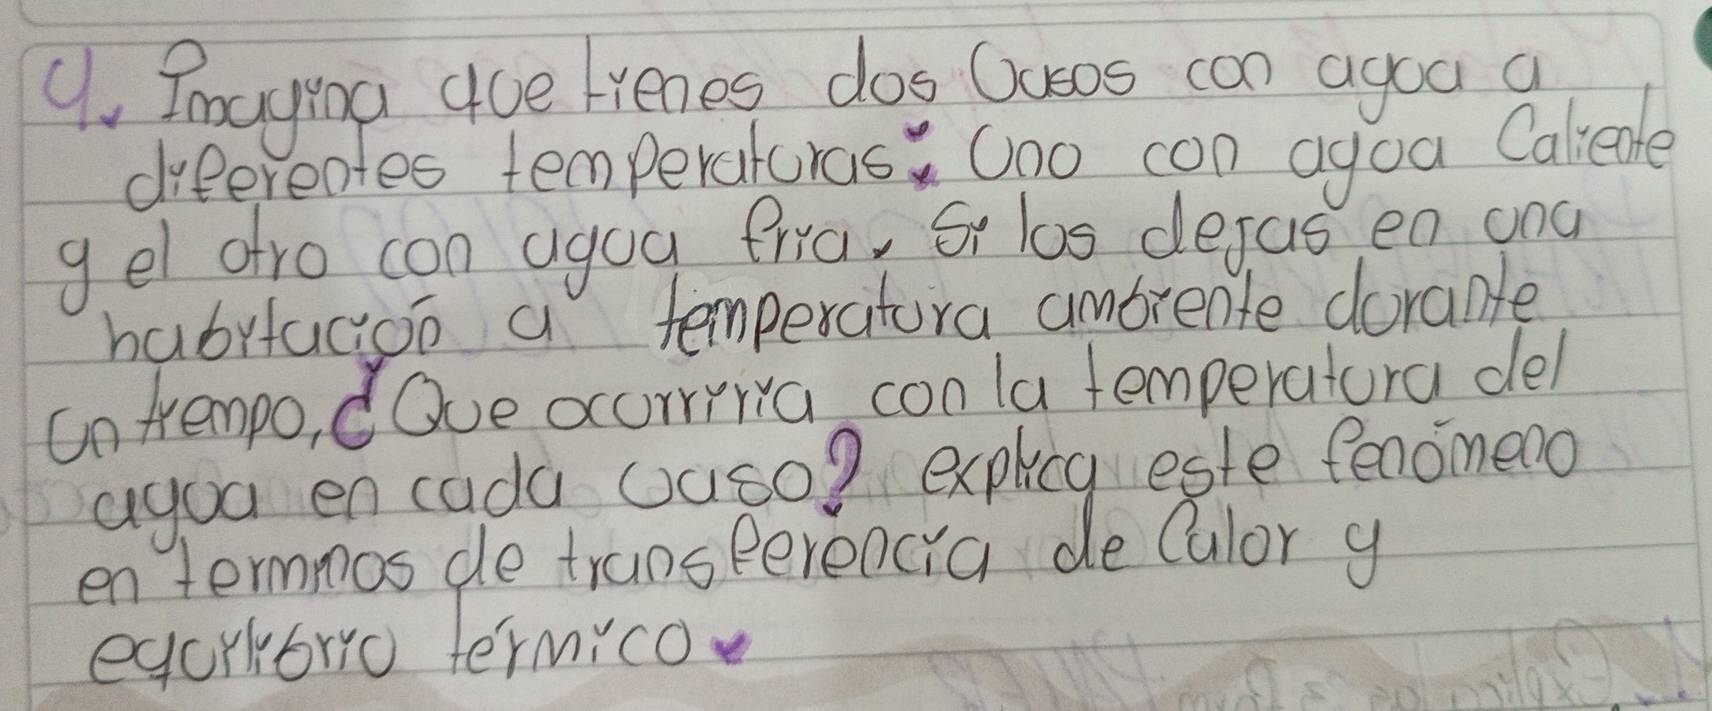 4. Imagina que tienes dos vasos con agua a
diferentes temperaturas: Uno con agua Caliente
y el otro con agua fria. Si los dejas en una
habitación a temperatura ambiente durante
un tiempo, ¿Que ocurriria con la temperatura del
agua en cada vaso? explica este fenómeno
en terminos de transferencia de Calor y
equilibrio térmico.